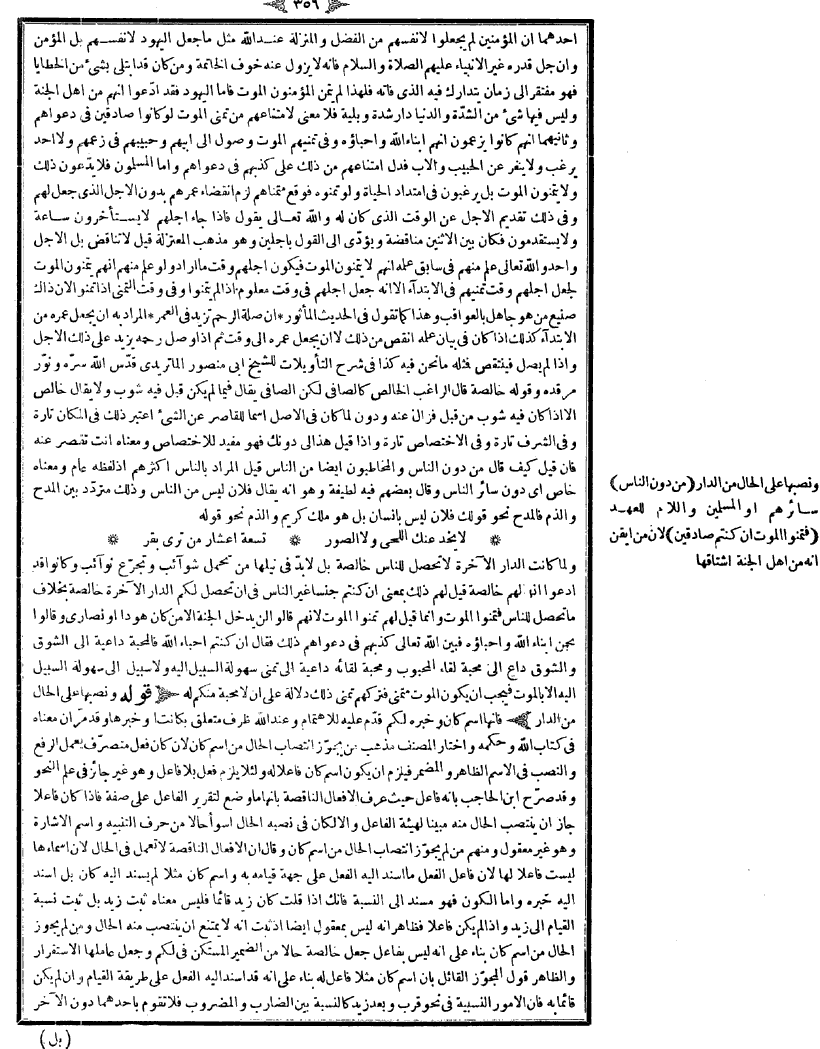 ٣٥٦
احدهما ان المؤمنين لم يجعلوا لانفسهم من الفضل والمنزلة عندالله مثل ماجعل اليهود لانفسهم بل المؤمن
وان جل قدره غير الانبياء عليهم الصلاة والسلام فانه لايزول عنه خوف الخاتمة ومن كان قدابتلى بشئ من الخطايا
فهو مفتقر الى زمان يتدارك فيه الذى فاته فلهذا لم يتمن المؤمنون الموت فاما اليهود فقد ادّعوا انهم من اهل الجنة
وليس فيها شئ من الشدّة والدنيا دار شدة وبلية فلا معنى لامتناعهم من تمنى الموت لوكانوا صادقين فى دعواهم
وثانيهما انهم كانوا يزعمون انهم ابناءالله واحباؤه وفى تمنيهم الموت وصول الى ابيهم وحبيبهم فى زعمهم ولااحد
يرغب ولاينفر عن الحبيب والاب فدل امتناعهم من ذلك على كذبهم فى دعواهم واما المسلمون فلايدّعون ذلك
ولايتمنون الموت بل يرغبون فى امتداد الحياة ولو تمنوه فوقع متمناهم لزم انقضاء عمرهم بدون الاجل الذى جعل لهم
وفى ذلك تقديم الاجل عن الوقت الذى كان له والله تعالى يقول فاذا جاء اجلهم لايستأخرون ساعة
ولايستقدمون فكان بين الاثنين مناقضة ويؤدّى الى القول باجلين وهو مذهب المعتزلة قيل لاتناقض بل الاجل
واحدوالله تعالى علم منهم فى سابق علمه انهم لايتمنون الموت فيكون اجلهم وقت مااراد ولوعلم منهم انهم يتمنون الموت
لجعل اجلهم وقت تمنيهم فى الابتدآء الاانه جعل اجلهم فى وقت معلوم اذالم يتمنوا وفى وقت التمنى اذاتمنوا لان ذاك
صنيع من هو جاهل بالعواقب وهذا كماتقول فى الحديث المأثور *ان صلة الرحم تزيد فى العمر* المراد به ان يجعل عمره من
الابتدآء كذلك اذا كان فى بيان عمله انقص من ذلك لاان يجعل عمره الى وقت ثم اذا وصل رحمه يزيد على ذلك الاجل
واذا لم يصل فينتقص فمثله مانحن فيه كذا فى شرح التأويلات للشيخ ابى منصور الماتريدى قدّس الله سرّه ونوّر
مرقده وقوله خالصة قال الراغب الخالص كالصافى لكن الصافى يقال فيما لم يكن قبل فيه شوب ولايقال خالص
الااذا كان فيه شوب من قبل فزال عنه ودون لما كان فى الاصل اسما للقاصر عن الشئ اعتبر ذلك فى المكان تارة
وفى الشرف تارة وفى الاختصاص تارة واذا قيل هذالى دونك فهو مفيد للاختصاص ومعناه انت تقصر عنه
فان قيل كيف قال من دون الناس والمخاطبون ايضا من الناس قيل المراد بالناس اكثرهم اذلفظه عام ومعناه
خاص اى دون سائر الناس وقال بعضهم فيه لطيفة وهو انه يقال فلان ليس من الناس وذلك متردّد بين المدح
والذم فالمدح نحو قولك فلان ليس بانسان بل هو ملك كريم والذم نحو قوله
* لايخدعنك اللحى ولاالصور * تسعة اعشار من ترى بقر *
ولما كانت الدار الآخرة لاتحصل للناس خالصة بل لابدّ فى نيلها من تحمل شوآئب وتجرّع نوآئب وكانوا قد
ادعوا انها لهم خالصة قيل لهم ذلك بمعنى ان كنتم جنساغير الناس فى ان تحصل لكم الدار الآخرة خالصة بخلاف
ماتحصل للناس فتمنوا الموت وانما قيل لهم تمنوا الموت لانهم قالوا لن يدخل الجنة الامن كان هودا او نصارى وقالوا
نحن ابناء الله واحباؤه فبين الله تعالى كذبهم فى دعواهم ذلك فقال ان كنتم احباء الله فالمحبة داعية الى الشوق
والشوق داع الى محبة لقاء المحبوب ومحبة لقائه داعية الى تمنى سهولة السبيل اليه ولاسبيل الى سهولة السبيل
اليه الابالموت فيجب ان يكون الموت متمنى فتركهم تمنى ذلك دلالة على ان لامحبة منكم له ﴿ قوله ونصبها على الحال
من الدار ﴾ فانها اسم كان وخبره لكم قدّم عليه للاهتمام وعندالله ظرف متعلق بكانت او خبرها وقد مرّ ان معناه
فى كتاب الله وحكمه واختار المصنف مذهب من يجوّز انتصاب الحال من اسم كان لان كان فعل متصرّف يعمل الرفع
والنصب فى الاسم الظاهر والمضمر فيلزم ان يكون اسم كان فاعلا له ولئلا يلزم فعل بلا فاعل وهو غير جائز فى علم النحو
وقد صرّح ابن الحاجب بانه فاعل حيث عرف الافعال الناقصة بانها ماوضع لتقرير الفاعل على صفة فاذا كان فاعلا
جاز ان ينتصب الحال منه مبينا لهيئة الفاعل والالكان فى نصبه الحال اسوأ حالا من حرف التنبيه واسم الاشارة
وهو غير معقول ومنهم من لم يجوّز انتصاب الحال من اسم كان وقال ان الافعال الناقصة لاتعمل فى الحال لان اسماءها
ليست فاعلا لها لان فاعل الفعل مااسند اليه الفعل على جهة قيامه به واسم كان مثلا لم يسند اليه كان بل اسند
اليه خبره واما الكون فهو مسند الى النسبة فانك اذا قلت كان زيد قائما فليس معناه ثبت زيد بل ثبت نسبة
القيام الى زيد واذالم يكن فاعلا فظاهر انه ليس بمعقول ايضا اذثبت انه لايمتنع ان ينتصب منه الحال ومن لم يجوز
الحال من اسم كان بناء على انه ليس بفاعل جعل خالصة حالا من الضمير المستكن فى لكم وجعل عاملها الاستقرار
والظاهر قول المجوّز القائل بان اسم كان مثلا فاعل له بناء على انه قداسند اليه الفعل على طريقة القيام وان لم يكن
قائما به فان الامور النسبية فى نحو قرب وبعد زيد كالنسبة بين الضارب والمضروب فلا تقوم باحدهما دون الآخر
(بل)
ونصبها على الحال من الدار (من دون الناس)
سائرهم او المسلمين واللام للعهد
(فتمنوا الموت ان كنتم صادقين) لان من ايقن
انه من اهل الجنة اشتاقها